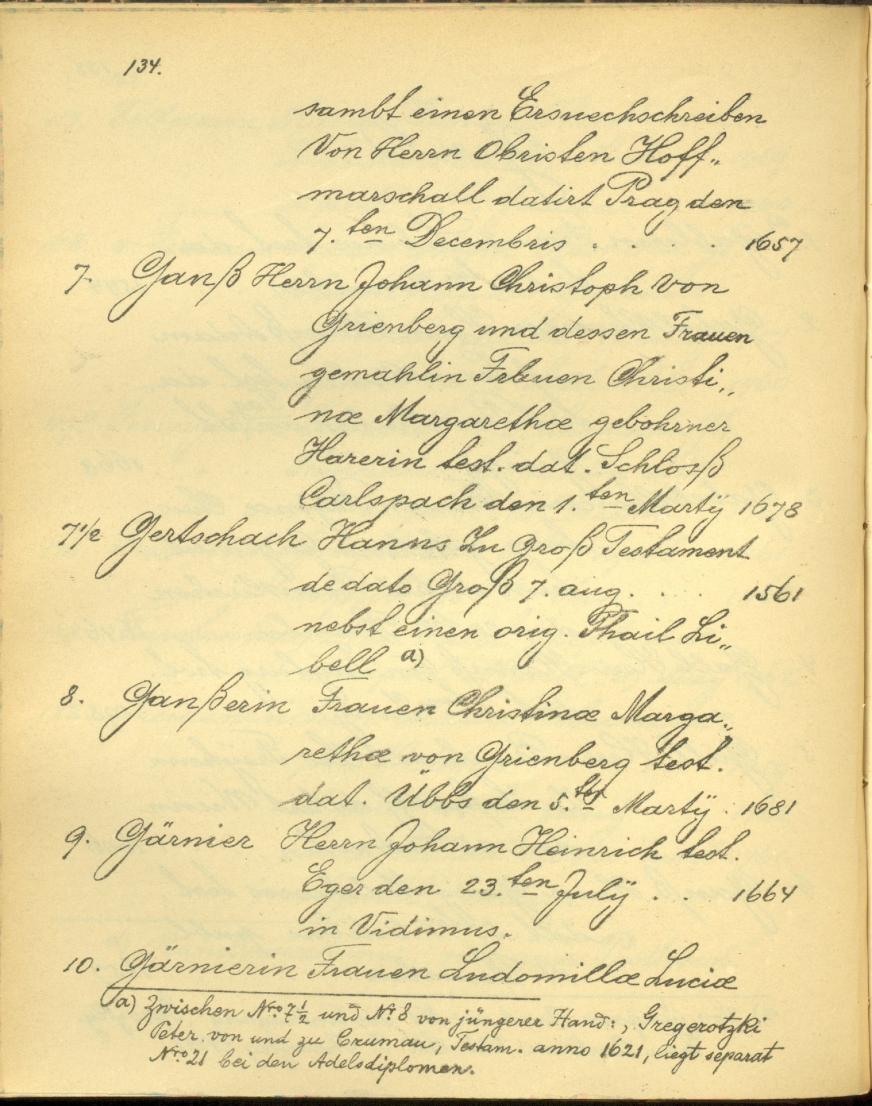 134.
sambt einen Ersuechschreiben
Von Herrn Obristen Hoff„
marschall datirt Prag den
7. ten Decembris . . . . 1657
7. Ganß Herrn Johann Christoph von
Grienberg und dessen Frauen
gemahlin Frauen Christi„
næ Margarethæ gebohrner
Harerin test. dat. Schlosß
Carlspach den 1. ten Martÿ 1678
7 1/2 Gertschach Hanns Zu Groß Testament
de dato Groß 7. aug. . . . 1561
nebst einen orig. Thail Li„
bell a)
8. Ganßerin Frauen Christinæ Marga„
rethæ von Grienberg test.
dat. Übbs den 5. ten Martÿ . 1681
9. Gärnier Herrn Johann Heinrich test.
Eger den 23. ten Julÿ . . . 1664
in Vidimus.
10. Gärnierin Frauen Ludomillæ Luciæ
a) Zwischen Nro. 7 1/2 und Nr. 8 von jüngerer Hand: , Gregerotzki
Peter von und zu Crumau, Testam. anno 1621, liegt separat
Nro 21 bei den Adelsdiplomen.